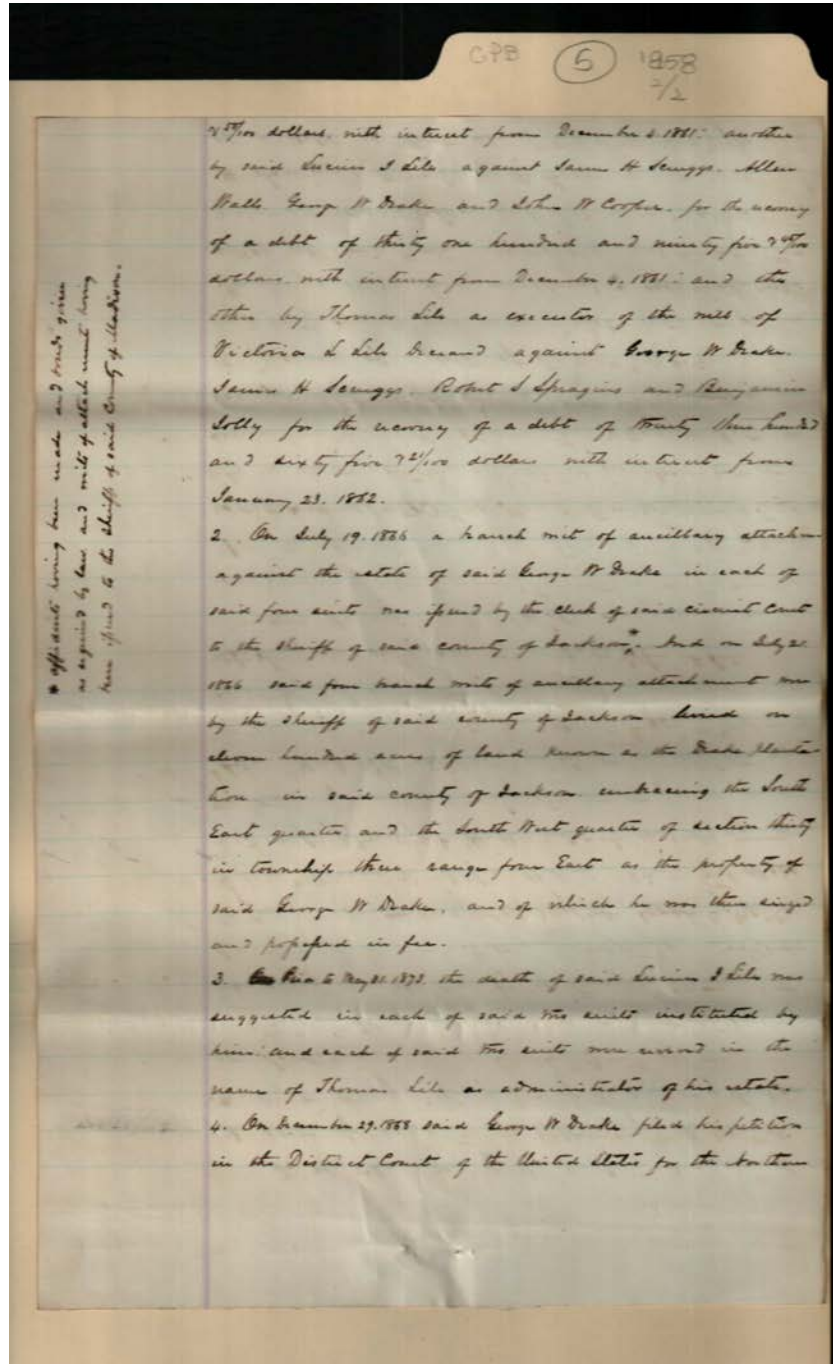 CPB 5 1858
2/2
& 50/100 dollars with interest from December 4. 1861: another
by said Lucius J Lile against James H Scruggs. Allen
Walls George W Drake and John W Cooper. for the recovery
of a debt of thirty one hundred and ninety five & 45/100
dollars with interest from December 4. 1861: and the
other by Thomas Lile as executor of the will of
Victoria L Lile deceased against George W Drake.
James H Scruggs. Robert S Spragins and Benjamin
Jolly for the recovery of a debt of twenty three hundred
and sixty five & 21/100 dollars with interest from
January 23. 1862.
2. On July 19. 1866 a branch writ of ancillary attachment
against the estate of said George W Drake in each of
said four suits was issued by the clerk of said circuit court
to the sheriff of said county of Jackson*. And on July 21
1866 said four branch writs of ancillary attachment were
by the sheriff of said county of Jackson levied on
eleven hundred acres of land known as the Drake planta-
tion in said county of Jackson embracing the South
East quarter and the South West quarter of section thirty
in township three range four East as the property of
said George W Drake, and of which he was then seized
and possessed in fee.
3. Prior to May 31. 1873 the death of said Lucius J Lile was
suggested in each of said two suits instituted by
him: and each of said two suits were revived in the
name of Thomas Lile as administrator of his estate.
4. On December 29. 1868 said George W Drake filed his petition
in the District Court of the United States for the Northern
* affidavits having been made and bonds given
as required by law and writs of attachment having
been issued to the sheriff of said County of Madison.